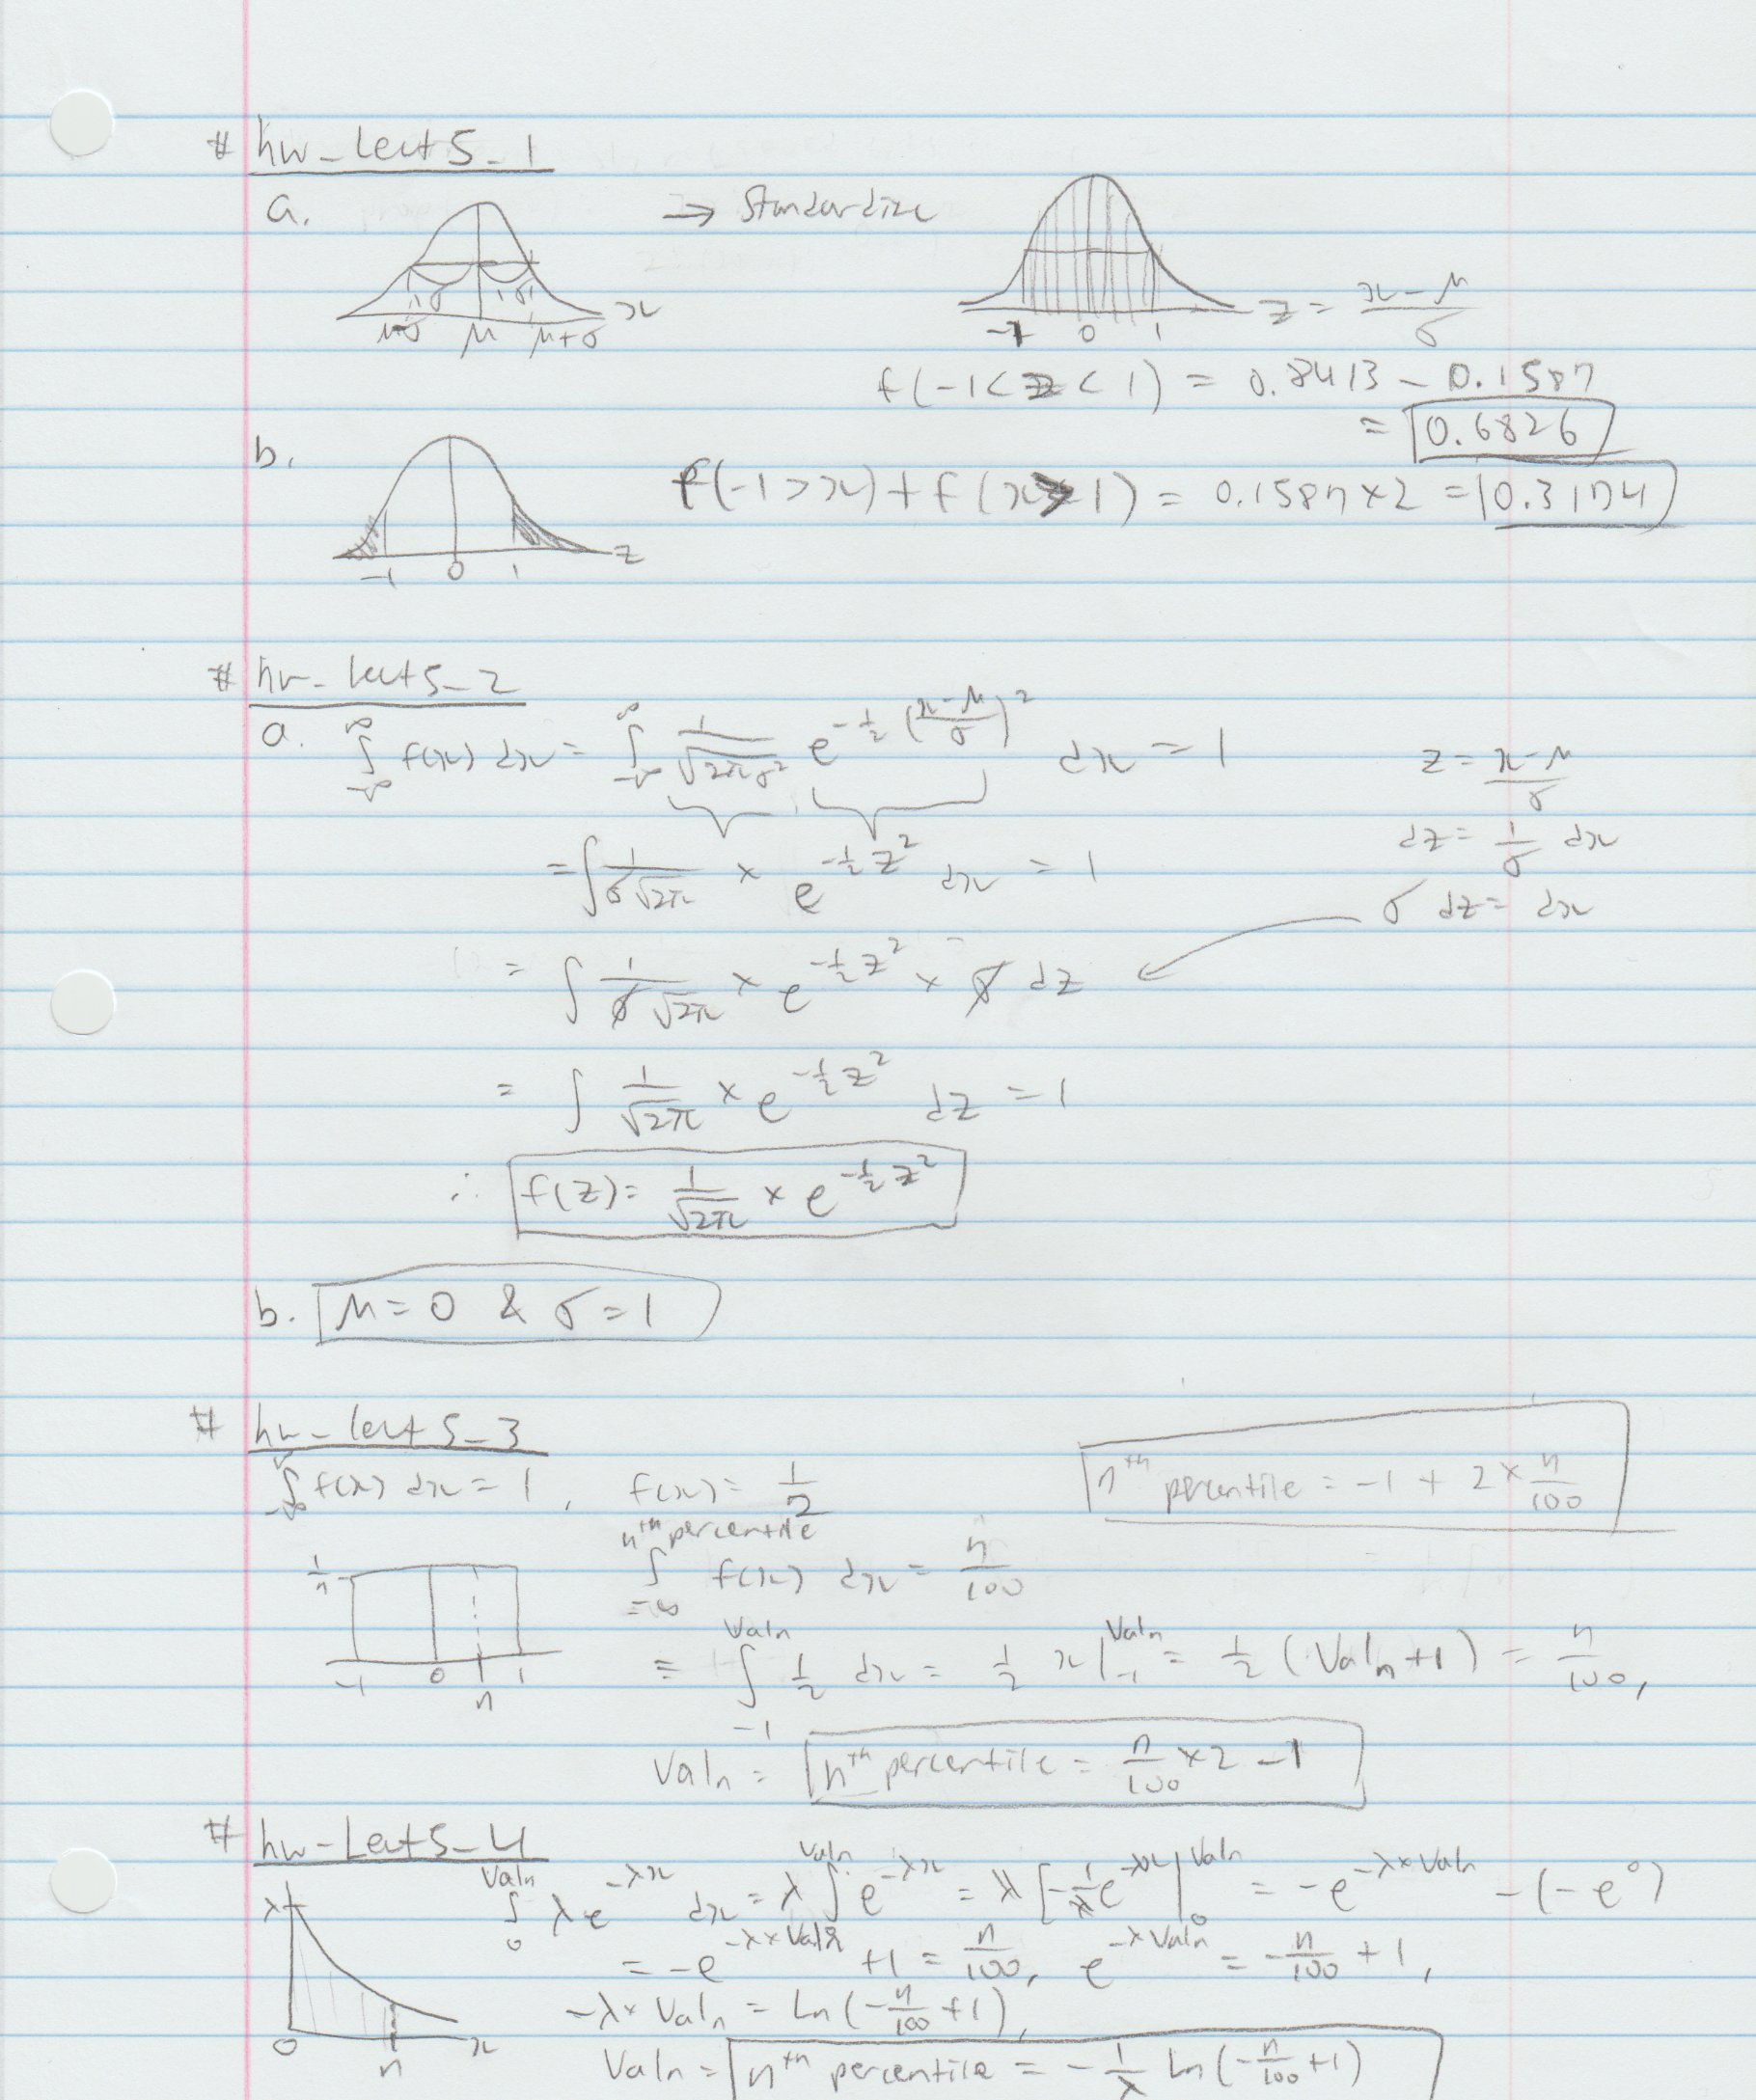 # hw_Lect5_1
a.
→ Standardize
μ-σ μ μ+σ x
σ σ
-1 0 1 z = (x-μ)/σ
f(-1<z<1) = 0.8413 - 0.1587
= 0.6826
b.
-1 0 1 z
f(-1>x)+f(x>1) = 0.1587×2 = 0.3174
# hw_lect5_2
a. ∫_{-∞}^{∞} f(x) dx = ∫_{-∞}^{∞} 1/√(2πσ²) e^{-1/2 ((x-μ)/σ)²} dx = 1
z = (x-μ)/σ
dz = 1/σ dx
σ dz = dx
= ∫ 1/(σ√2π) × e^{-1/2 z²} dx = 1
= ∫ 1/(σ√2π) × e^{-1/2 z²} × σ dz
= ∫ 1/√2π × e^{-1/2 z²} dz = 1
∴ f(z) = 1/√2π × e^{-1/2 z²}
b. μ=0 & σ=1
# hw_lect5_3
∫_{-∞}^{∞} f(x) dx = 1, f(x) = 1/2
n^th percentile = -1 + 2 × n/100
∫_{-∞}^{n^th percentile} f(x) dx = n/100
1/n
-1 0 n 1
= ∫_{-1}^{Valn} 1/2 dx = 1/2 x|_{-1}^{Valn} = 1/2 (Valn+1) = n/100,
Valn = n^th percentile = n/100 × 2 - 1
# hw-Lect5_4
∫_0^{Valn} λe^{-λx} dx = λ∫^{Valn} e^{-λx} = λ[-1/λ e^{-λx}|_0^{Valn} = -e^{-λ×Valn} - (-e^0)
= -e^{-λ×Valn} +1 = n/100, e^{-λValn} = -n/100 + 1,
-λ×Valn = Ln(-n/100 +1),
λ
0 n x
Valn = n^th percentile = -1/λ Ln(-n/100 +1)